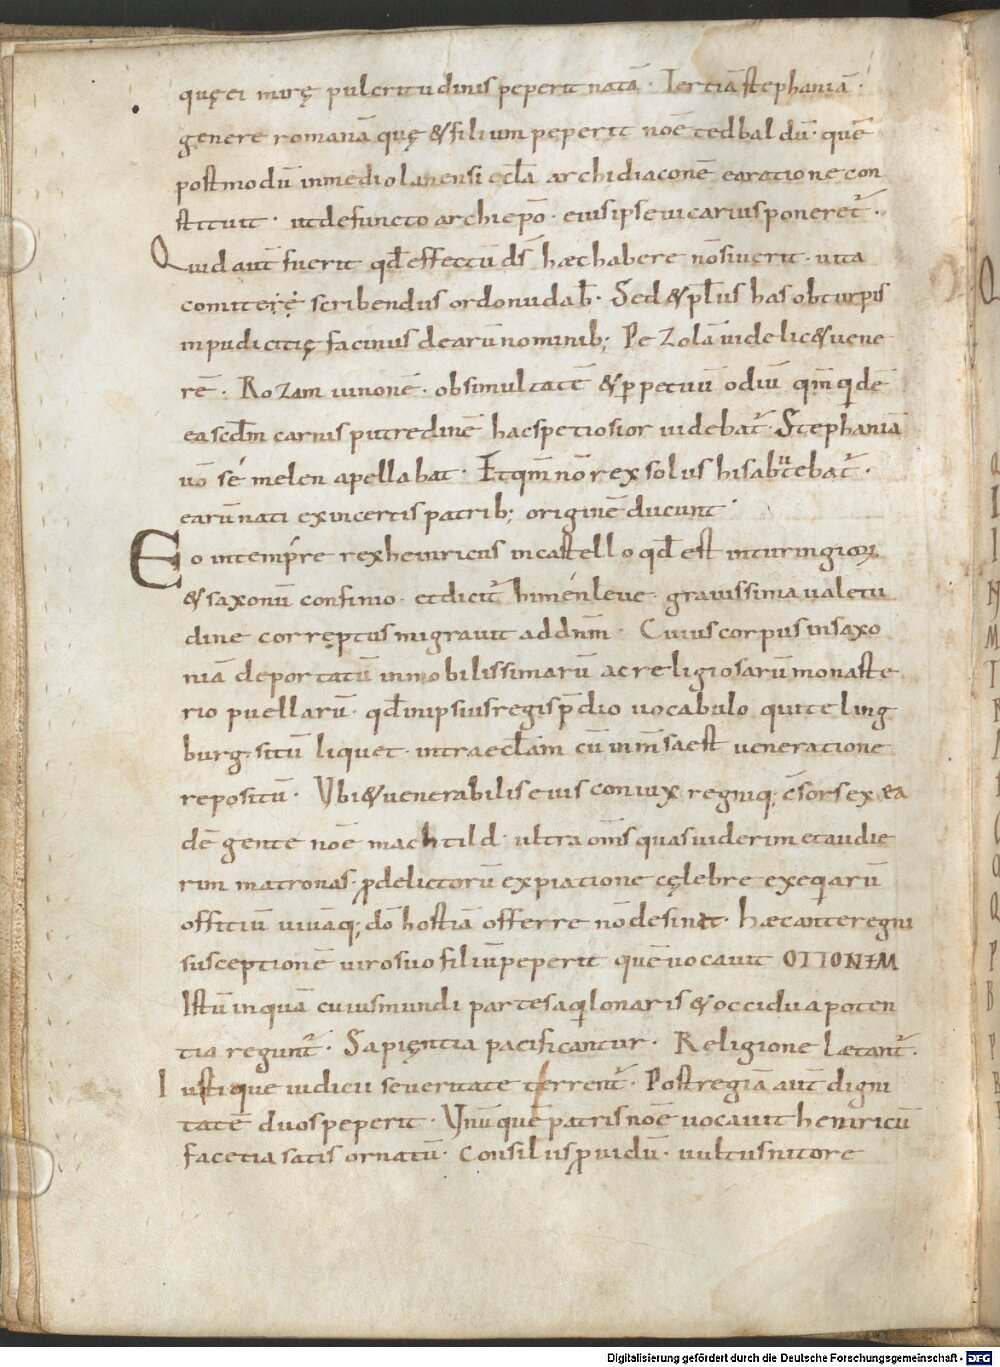 quę ei mirę pulcritudinis peperit natā. Tertiā stephaniā.
genere romanā quę & filium peperit noē tedbaldū. quē
postmodū in mediolanensi eccła archidiaconē ea ratione con
stituit. ut defuncto archiepō. eius ipse vicarius poneret̄.
Quid aut̄ fuerit qđ effectū dš hæc habere nō siuerit. vita
comite rẹi̇ scribendus ordo nudab̄. Sed & pł us has ob turpis
inpudicitię facinus dearū nominib; Pezolā videlic& vene
rē. Rozam iunonē. ob simultatē & ꝑpetuū odiū qm̄ qdē
ea scđm carnis putredinē hac spetiosior videbat̄. Stephaniā
uō sémelen apellabat. Et qm̄ nō rex solus his abutebat̄.
earū nati ex incertis patrib; originē ducunt.
Eo in temp̄re rex heinricus in castello qđ est in turingioꝝ
& saxonū confinio. et dicit̄ himénleue. gravissima valetu
dine correptus migravit ad dnm̄. Cuius corpus in saxo
niā deportatū in nobilissimarū ac religiosarū monaste
rio puellarū. qđ in ipsius regis p̄dio vocabulo quiteling
burg. sitū liquet. intra eccłam cū inm̄sa est veneratione
repositū. Vbi & venerabilis eius coniux regniq; c̄sors ex ea
dē gente noē machtild. ultra om̄s quas viderim et audie
rim matronas. ꝓ delictorū expiatione cęlebre exeqarū
offitiū viuāq; dō hostiā offerre nō desinit. hæc ante regni
susceptionē viro suo filiū peperit quē vocavit OTTONEM
Istū inquā cuius mundi partes aqlonaris & occidua poten
tia regunt̄. Sapięntia pacificantur. Religione lætant̄.
Iustique iudicii severitate terrent̄. Post regiā aut̄ digni
tatē duos peperit. Vnū quē patris noē vocavit heinricū
facetia satis ornatū. Consiliis ꝓvidū. vultus nitore
Digitalisierung gefördert durch die Deutsche Forschungsgemeinschaft - DFG